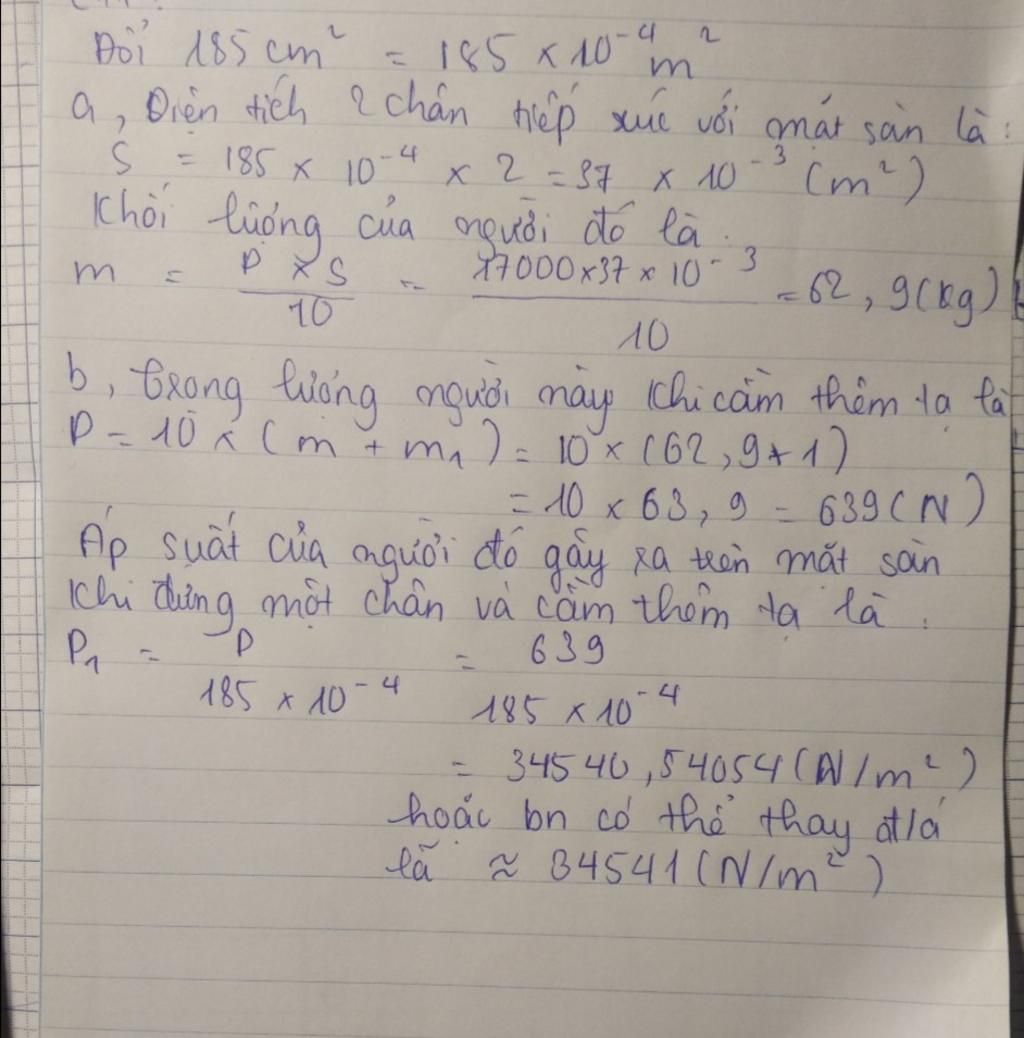 Đổi 185 cm² = 185 × 10⁻⁴ m²
a, Diện tích 2 chân tiếp xúc với mặt sàn là:
S = 185 × 10⁻⁴ × 2 = 37 × 10⁻³ (m²)
Khối lượng của người đó là.
m = P × S / 10 = 17000 × 37 × 10⁻³ / 10 = 62,9 (kg)
b, trong lượng người này khi cầm thêm tạ là
P = 10 × (m + m₁) = 10 × (62,9 + 1)
= 10 × 63,9 = 639 (N)
Áp suất của người đó gây ra trên mặt sàn
khi đứng một chân và cầm thêm tạ là.
P₁ = P / 185 × 10⁻⁴ = 639 / 185 × 10⁻⁴
= 34540,54054 (N/m²)
hoặc bn có thể thay đ/á
là ≈ 34541 (N/m²)